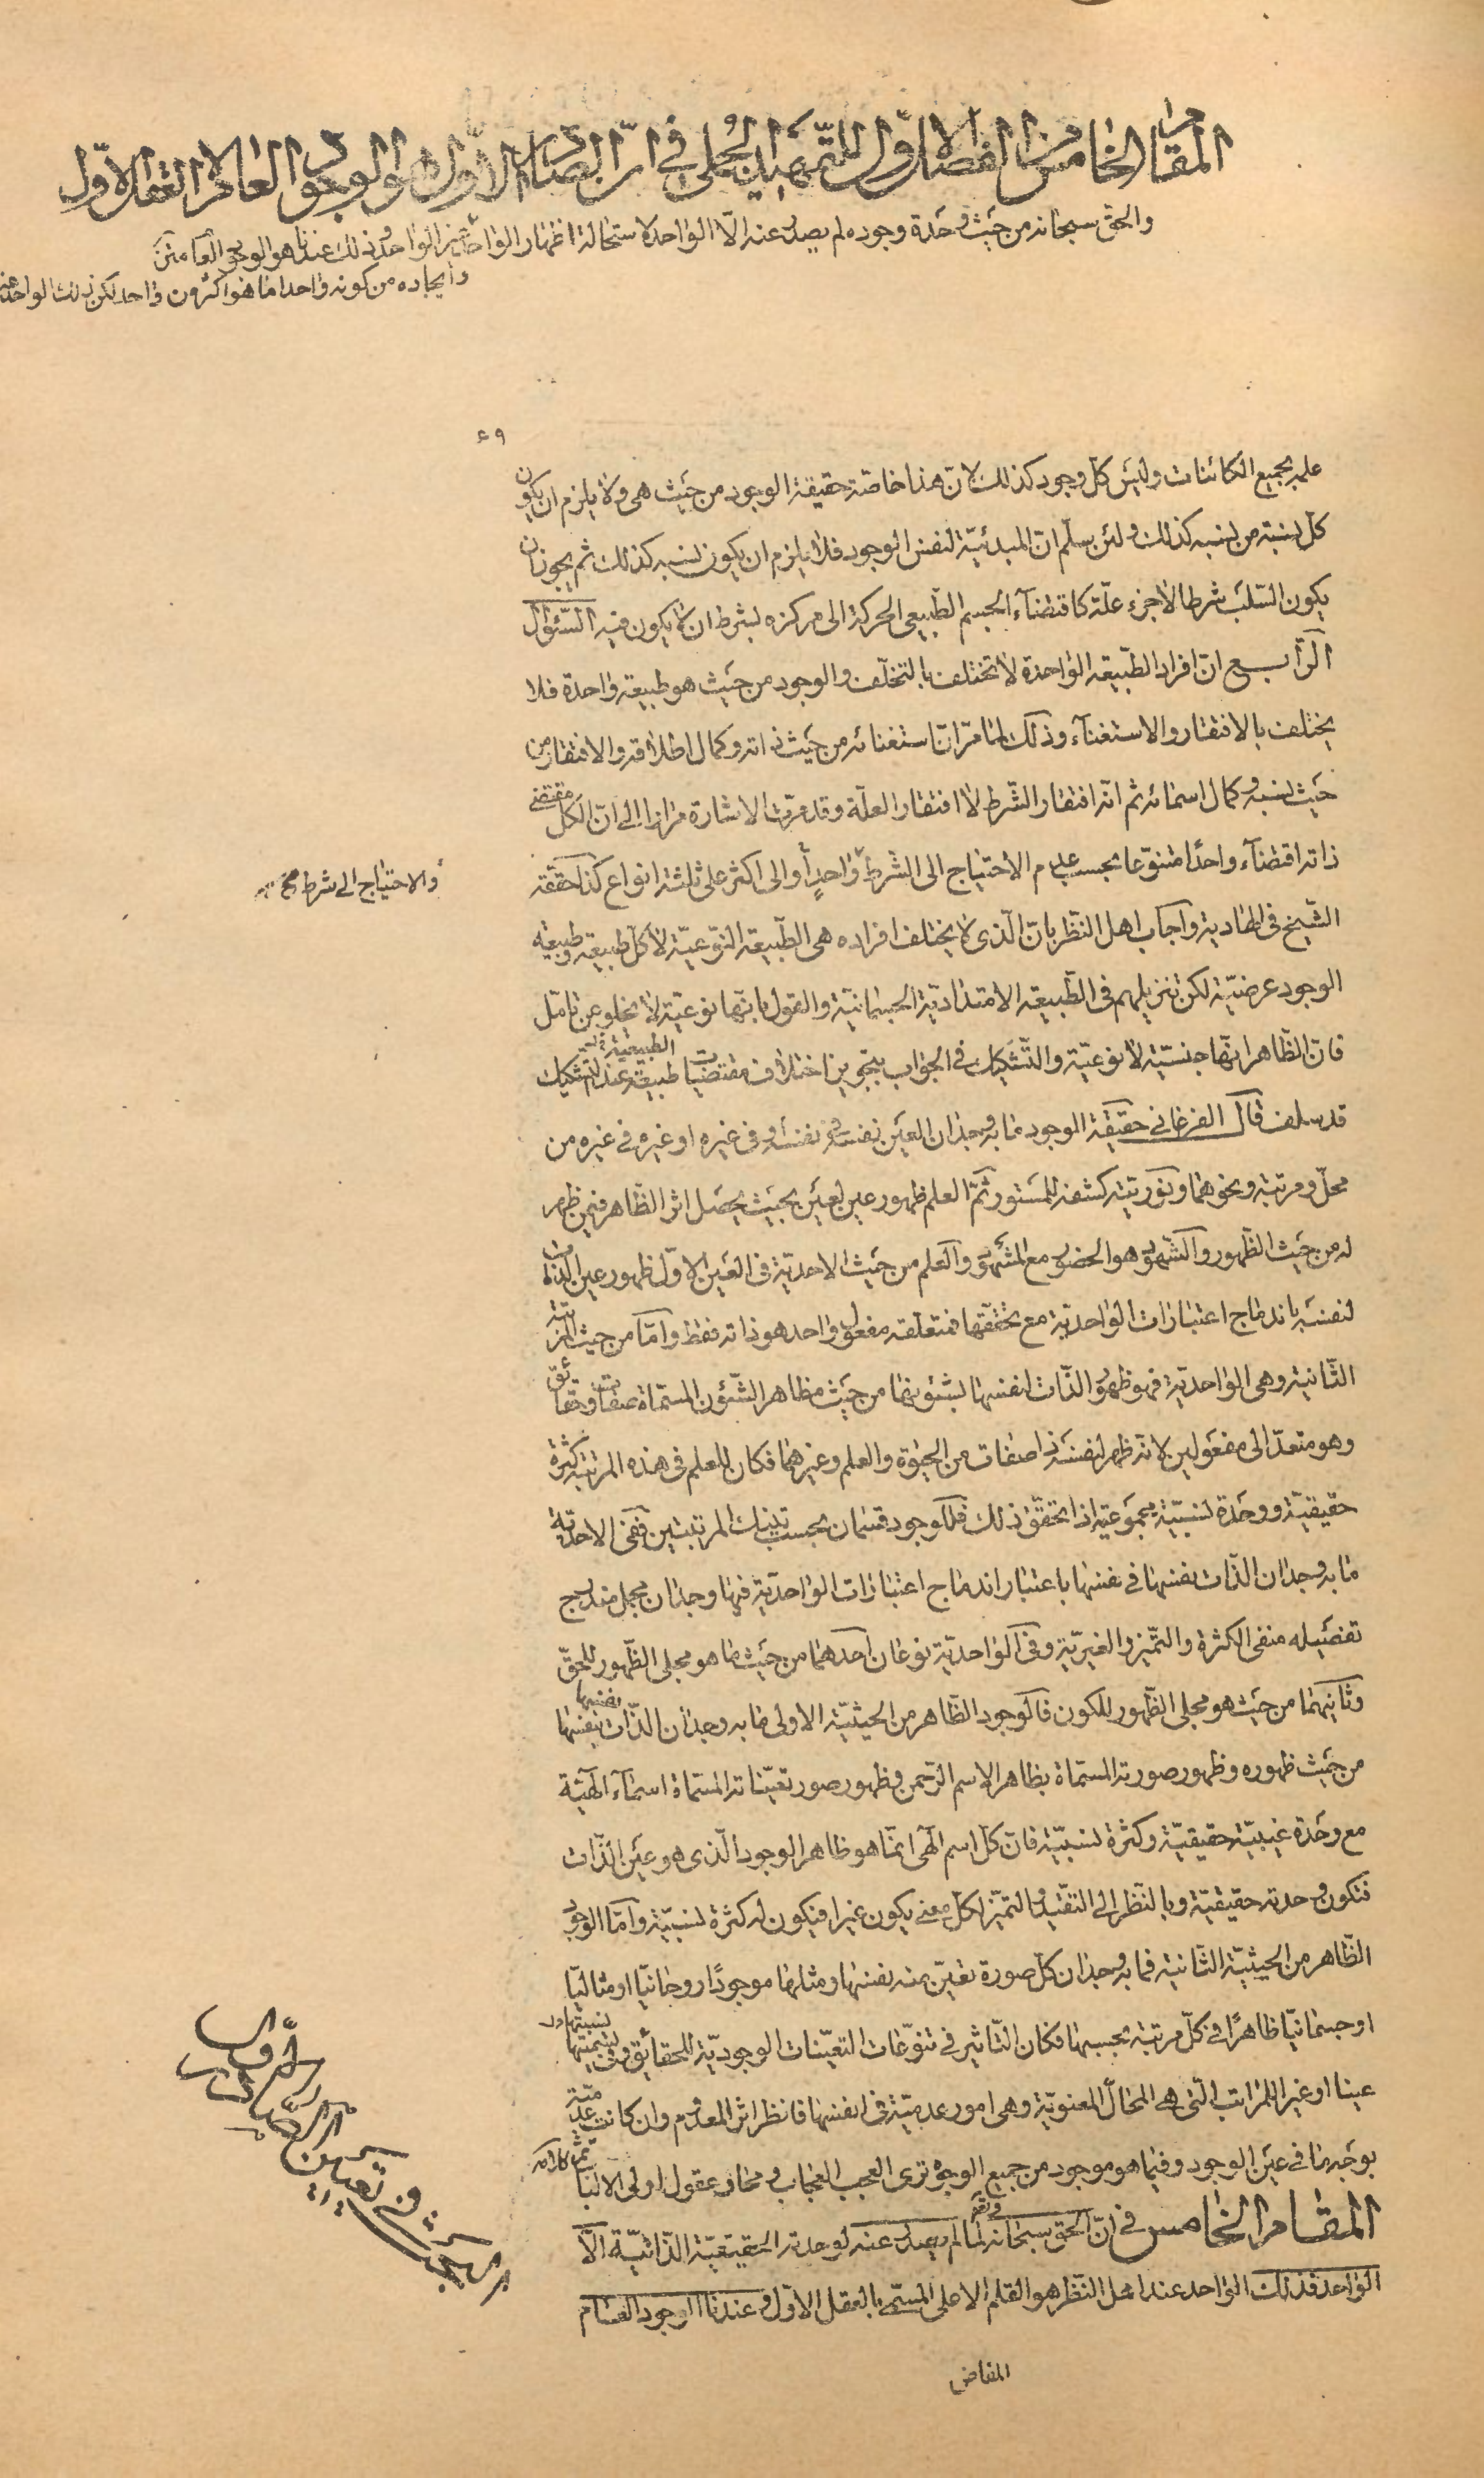 المقام الخامس من الفصل الاوّل للتّمهيد الجملى في انّ الصّادر الاوّل هو الوجود العام لا العقل الاوّل
والحقّ سبحانه من حيث وحدة وجوده لم يصدر عنه الّا الواحد لاستحالة اظهار الواحد غير الواحد وذلك عندنا هو الوجود العام
وايجاده من كونه واحدا ما هو اكثر من واحد لكن ذلك الواحد
٤٩
علمه بجميع الكائنات وليس كلّ وجود كذلك لانّ هذا خاصّة حقيقة الوجود من حيث هى ولا يلزم ان يكون
كلّ نسبة من نسبه كذلك ولئن سلّم انّ المبدئيّة لنفس الوجود فلا يلزم ان يكون نسبه كذلك ثم يجوز ان
يكون السّلب شرطا لا جزء علّة كاقتضآء الجسم الطّبيعى الحركة الى مركزه بشرط ان لا يكون فيه السّؤال
الرّابع انّ افراد الطّبيعة الواحدة لا تختلف بالتخلّف والوجود من حيث هو طبيعة واحدة فلا
يختلف بالافتقار والاستغنآء وذلك لما مرّ انّ استغنائه من حيث ذاته وكمال اطلاقه والافتقار من
حيث نسبه وكمال اسمائه ثم انّه افتقار الشّرط لا افتقار العلّة وقد مرّت الاشارة مرارا الى انّ الكلّ مقتضى
ذاته اقتضآء واحدًا متنوّعا بحسب عدم الاحتياج الى الشرط واحدٍ أو الى اكثر على ثلثة انواع كذا حقّقه
والاحتياج الى شرط
الشّيخ فى الهادية واجاب اهل النّظر بانّ الّذى لا يختلف افراده هى الطّبيعة النّوعيّة لا كلّ طبيعة وطبيعة
الوجود عرضيّة لكن تنزيلهم فى الطّبيعة الامتداديّة الجسمانيّة والقول بانّها نوعيّة لا يخلو عن تامّل
فانّ الظّاهر انّها جنسيّة لا نوعيّة والتّشكيك فى الجواب بتجويز اختلاف مقتضيات طبيعة عند التّشكيك
الطبيعية
قد سلف قال الفرغانى حقيقة الوجود ما به وجدان العين نفسه فى نفسه وفى غيره او غيره فى غيره من
محلّ ومرتبة ونحوهما ونوريّته كشفه للمستور ثمّ العلم ظهور عين لعين بحيث يحصل اثر الظّاهر فيمن ظهر
له من حيث الظّهور والشّهود هو الحضور مع المشهود والعلم من حيث الاحديّة فى العين الاوّل ظهور عين الذّات
لنفسه باندماج اعتبارات الواحديّة مع تحقّقها فمتعلّقه مفعول واحد هو ذاته فقط وامّا من حيث المرتبة
الثّانية وهى الواحديّة فهو ظهور الذّات لنفسها بشئونها من حيث مظاهر الشّئون المسمّاة صفات وحقائق
وهو متعدّ الى مفعولين لانّه ظهر لنفسه ذا صفات من الحيٰوة والعلم وغيرهما فكان للعلم فى هذه المرتبة كثرة
حقيقيّة ووحدة نسبيّة مجموعيّة اذا تحقّق ذلك فللوجود قسمان بحسب تينك المرتبتين ففى الاحديّة
ما به وجدان الذّات نفسها فى نفسها باعتبار اندماج اعتبارات الواحديّة فيها وجدان مجمل مندرج
تفصيله منفى الكثرة والتّميّز والغيريّة وفى الواحديّة نوعان احدهما من حيث ما هو مجلى الظّهور للحقّ
وثانيهما من حيث هو مجلى الظّهور للكون فالوجود الظّاهر من الحيثيّة الاولى ما به وجدان الذّات نفسها
من حيث ظهوره وظهور صورته المسمّاة بظاهر الاسم الرّحمن وظهور صور تعيّناته المسمّاة اسمآء الٰهيّة
مع وحدة غيبيّة حقيقيّة وكثرة نسبيّة فانّ كلّ اسم الٰهى انّما هو ظاهر الوجود الّذى هو عين الذّات
فتكون وحدته حقيقيّة وبالنّظر الى التقيّد والتميّز لكلّ معنى يكون غيرا فيكون له كثرة نسبيّة وامّا الوجود
الظّاهر من الحيثيّة الثّانية فما به وجدان كلّ صورة تعيّن منه نفسها ومثلها موجودًا روحانيّا او مثاليّا
او جسمانيّا ظاهرًا فى كلّ مرتبة بحسبها فكان التّاثير فى تنوّعات التعيّنات الوجوديّة للحقائق
عينا او غيرا للمراتب الّتى هى المحالّ المعنويّة وهى امور عدميّة فى انفسها فانظر اثر المعدوم وان كانت عدميّة
بوجه ما فى عين الوجود وفيما هو موجود من جميع الوجوه ترى العجب العجاب ومحار عقول اولى الالباب تمّ كلامه
المقام الخامس فى انّ الحقّ سبحانه لما لم يصدر عنه لوحدته الحقيقيّة الذّاتيّة الّا
الواحد فذلك الواحد عند اهل النّظر هو القلم الاعلى المسمّى بالعقل الاوّل وعندنا الوجود العام
البحث فى تعيين الصّادر الاوّل
المفاض